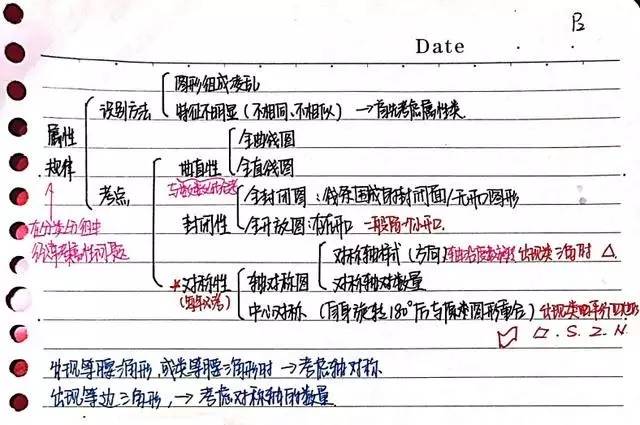 P2
Date
图形组成凌乱
识别方法
特征不明显(不相同、不相似) → 首先考虑属性类
属性
规律
全曲线图
曲直性
全直线图
考点
全封闭图:线条围成的封闭面/无开口图形
封闭性
全开放图:有开口 一般留一个小开口.
在分类分组中
经常考属性问题
对称轴样式(方向) 出现类三角时 △
*对称性
轴对称图
(每年必考)
对称轴对数量
中心对称(自身旋转180°后与原来图形重合) 出现类平行四边形
▱.S.Z.N.
出现等腰三角形,或类等腰三角形时 → 考虑轴对称
出现等边三角形, → 考虑对称轴的数量